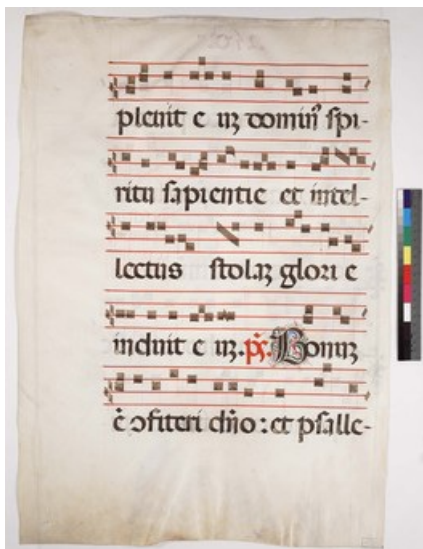 pleuit e uꝫ domin᷒ spi-
ritu sapientie et intel-
lectus stolaꝫ glori e
induit e uꝫ. p̃s. Bonuꝫ
ē ↄfiteri dño: et psalle-